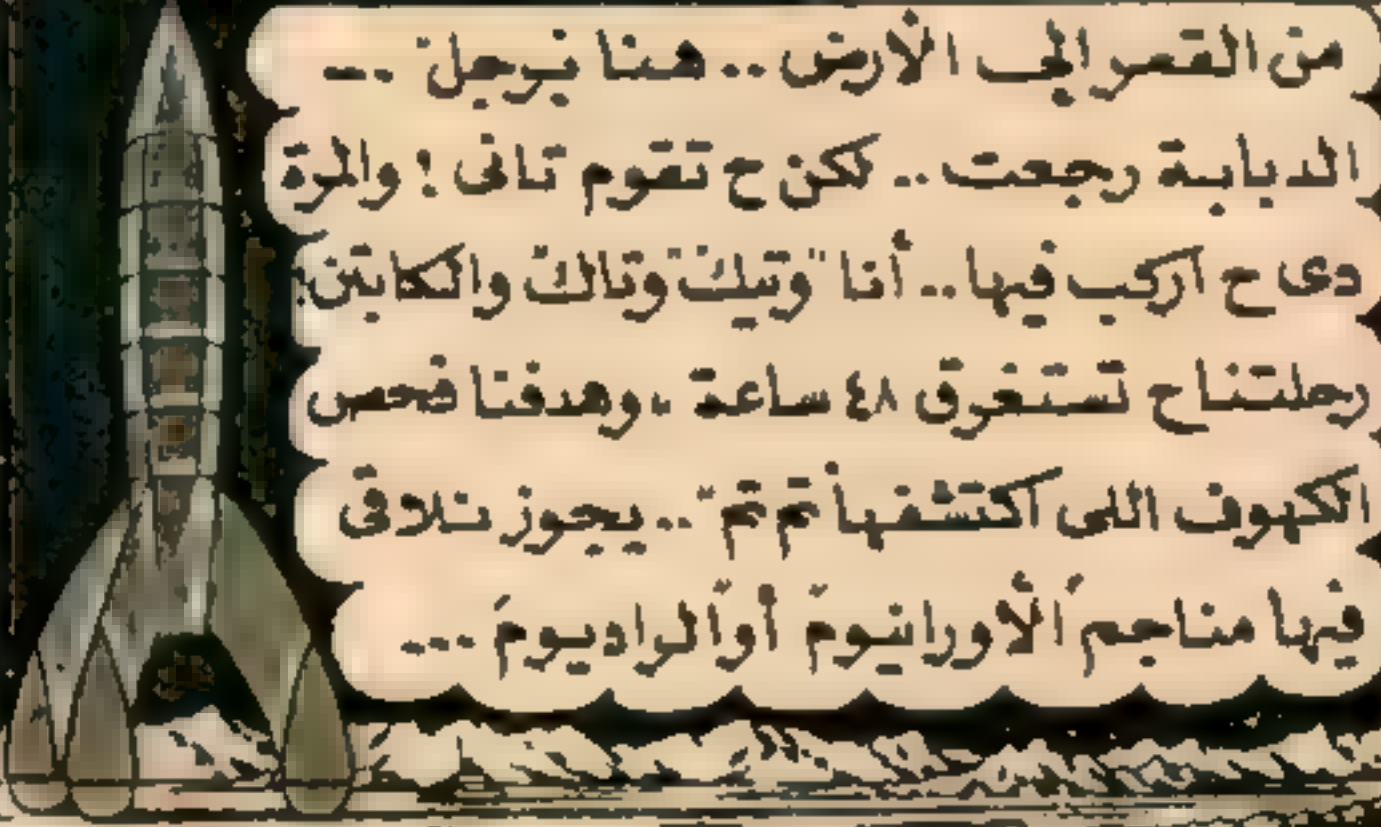 من القمر إلى الأرض .. هنا "برجل" ...
الدبابة رجعت .. لكن ح تقوم تانى ! والمرة
دى ح اركب فيها .. أنا "وتيك" وتاك والكابتن
رحلتنا ح تستغرق ٤٨ ساعة ، وهدفنا فحص
الكهوف اللى اكتشفها "تم تم" .. يجوز نلاقى
فيها مناجم "الأورانيوم" أو "الراديوم" ...